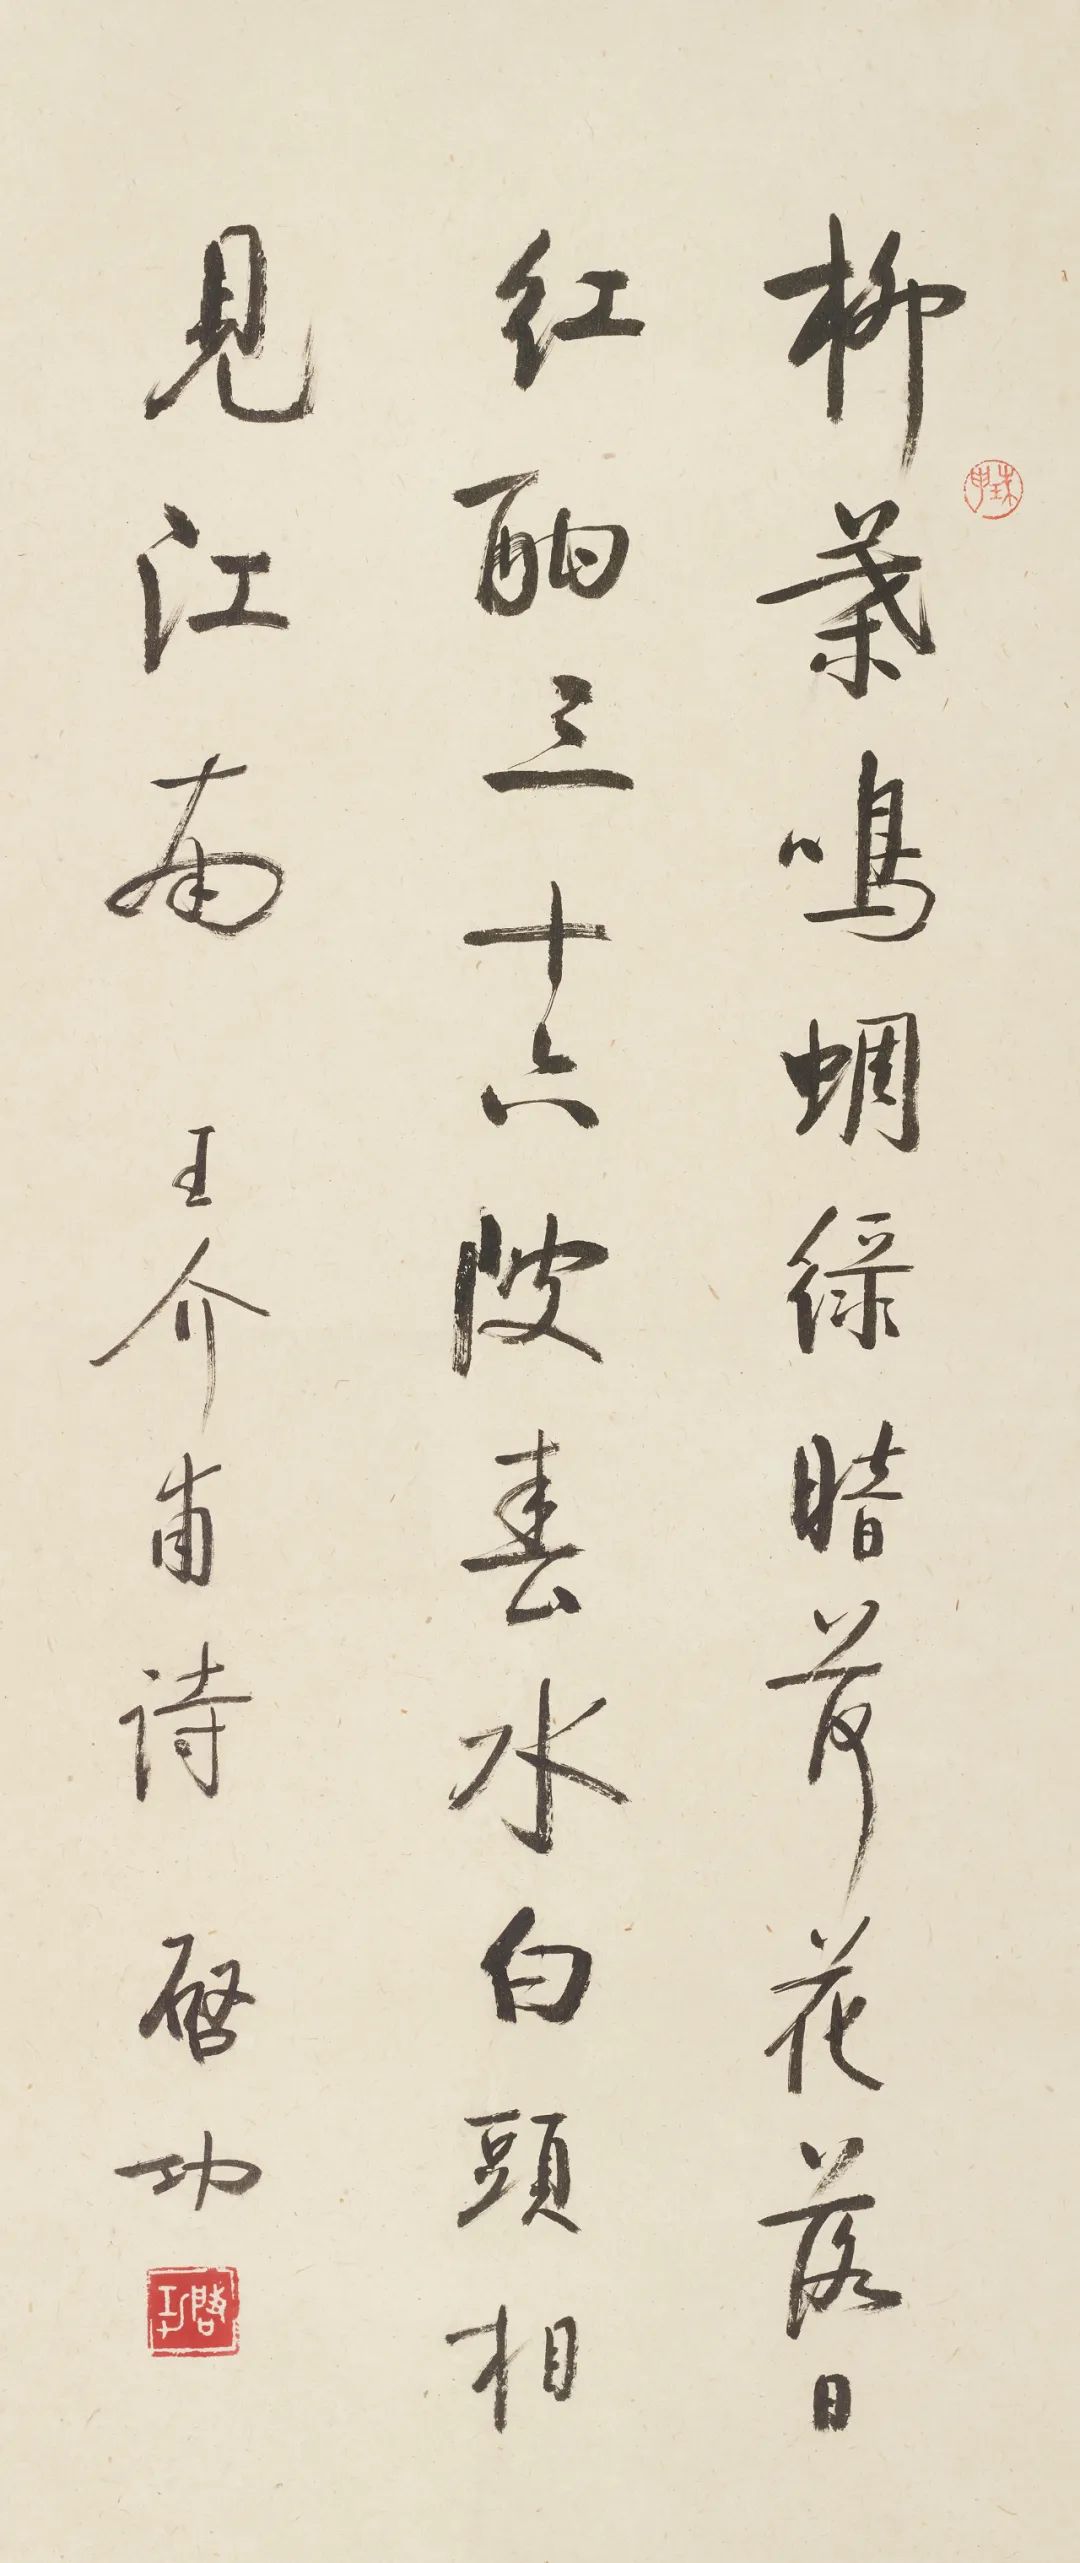 柳葉鳴蜩綠暗荷花落日
红酣三十六陂春水白頭相
見江南 王介甫詩 啓功
啓功